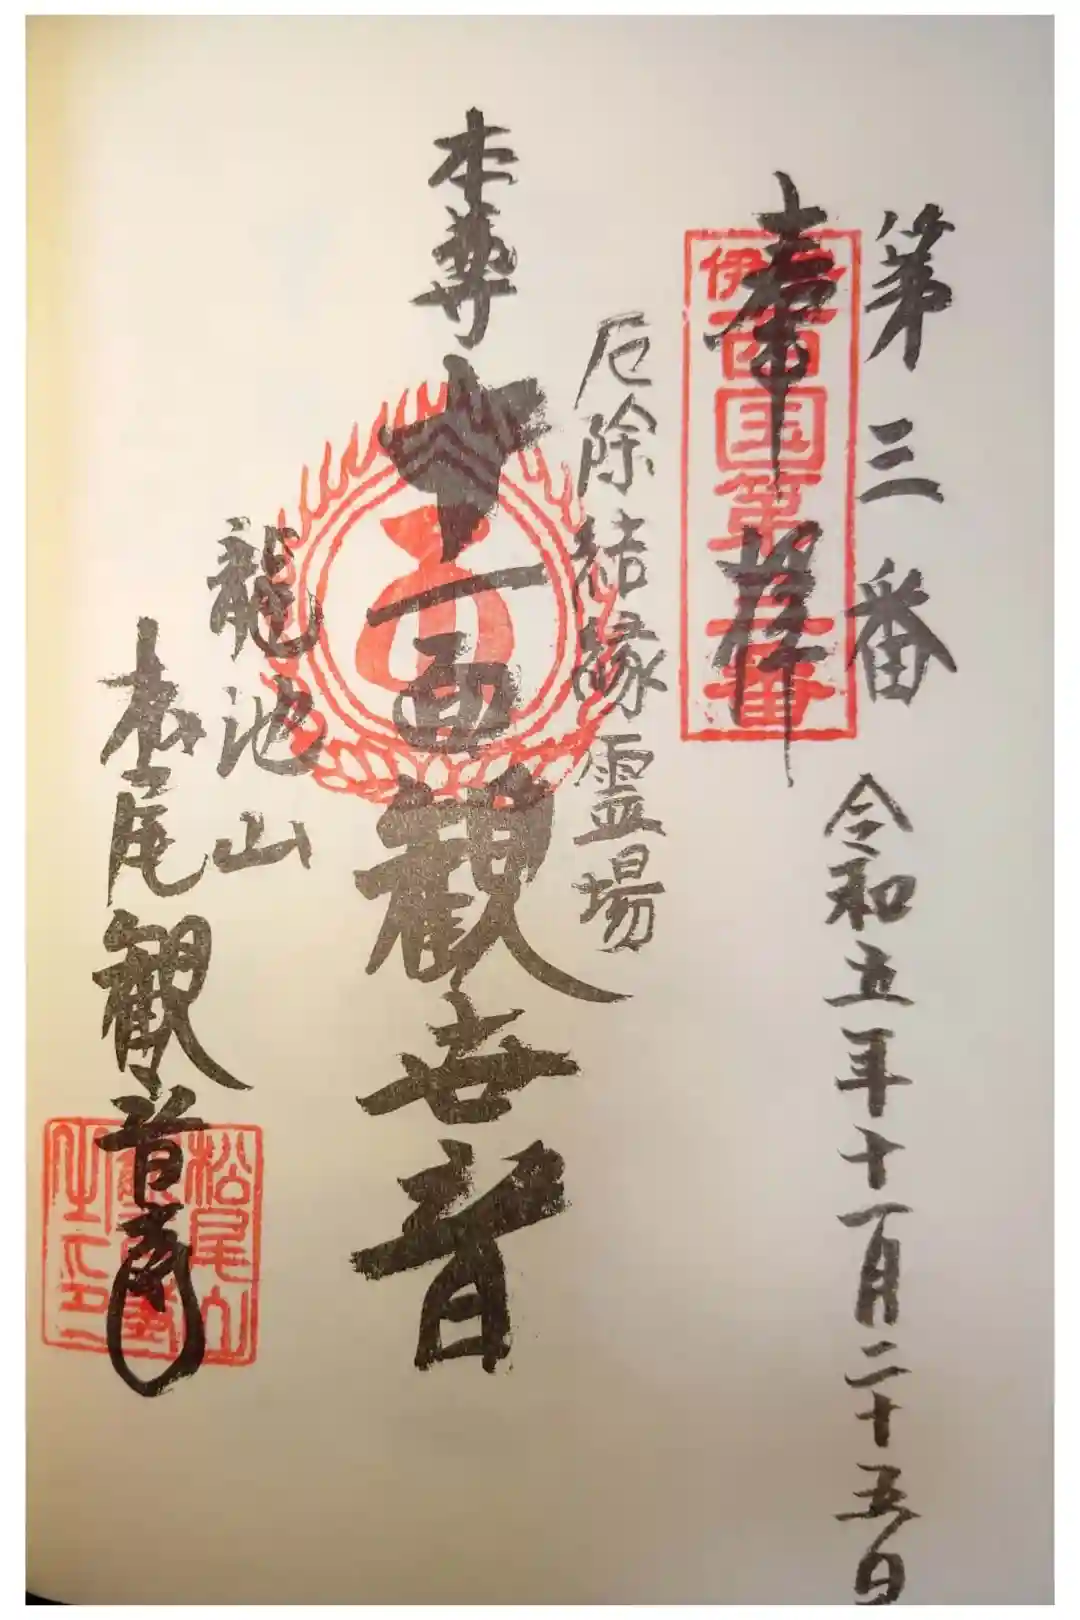 第三番
令和五年十一月二十五日
奉拝
伊勢西国第三番
厄除結縁霊場
本尊
十一面観世音
龍池山
松尾観音寺
松尾山
之印